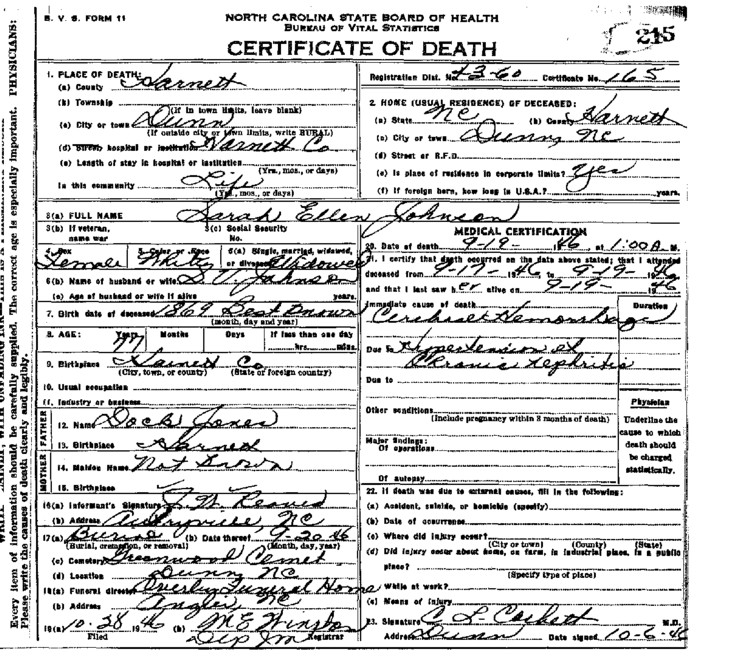 B. V. S. FORM 11
NORTH CAROLINA STATE BOARD OF HEALTH
BUREAU OF VITAL STATISTICS
CERTIFICATE OF DEATH
215
Registration Dist. No. 43-60 Certificate No. 165
1. PLACE OF DEATH:
(a) County Harnett
(b) Township
(If in town limits, leave blank)
(c) City or town Dunn
(If outside city or town limits, write RURAL)
(d) Street, hospital or institution Harnett Co
(e) Length of stay in hospital or institution
(Yrs., mos., or days)
In this community Life
(Yrs., mos., or days)
2. HOME (USUAL RESIDENCE) OF DECEASED:
(a) State NC (b) County Harnett
(c) City or town Dunn, NC
(d) Street or R.F.D.
(e) Is place of residence in corporate limits? Yes
(f) If foreign born, how long in U.S.A.? years.
3(a) FULL NAME Sarah Ellen Johnson
3(b) If veteran, name war
3(c) Social Security No.
4. Sex Female 5. Color or Race White 6(a) Single, married, widowed, or divorced Widowed
6(b) Name of husband or wife Johnson
(c) Age of husband or wife if alive years.
7. Birth date of deceased 1869 Best Known
(month, day and year)
8. AGE: Years 77 Months Days If less than one day
hrs. mins.
9. Birthplace Harnett Co
(City, town, or county) (State or foreign country)
10. Usual occupation
11. Industry or business
FATHER
12. Name Dock Jones
13. Birthplace Harnett
MOTHER
14. Maiden Name Not Known
15. Birthplace
16(a) Informant's Signature
(b) Address Autryville, NC
17(a) Burial (b) Date thereof 9-20-46
(Burial, cremation, or removal) (Month, day, year)
(c) Cemetery Greenwood Cemet
(d) Location Dunn, NC
18(a) Funeral director Overby Funeral Home
(b) Address Angier, NC
19(a) 10-28 1946 (b) M E Winston
Filed Registrar
MEDICAL CERTIFICATION
20. Date of death 9-19- 46, at 1:00 A.M.
21. I certify that death occurred on the date above stated; that I attended
deceased from 9-17- 1946 to 9-19- 1946
and that I last saw her alive on 9-19- 1946
Immediate cause of death Duration
Cerebral Hemorrhage
Due to Hypertension et
Chronic Nephritis
Due to
Other conditions
(Include pregnancy within 3 months of death)
Major findings:
Of operations
Of autopsy
Physician
Underline the
cause to which
death should
be charged
statistically.
22. If death was due to external causes, fill in the following:
(a) Accident, suicide, or homicide (specify)
(b) Date of occurrence
(c) Where did injury occur?
(City or town) (County) (State)
(d) Did injury occur about home, on farm, in industrial place, in a public
place?
(Specify type of place)
While at work?
(e) Means of injury
23. Signature M.D.
Address Dunn Date signed 10-6-46
Every item of information should be carefully supplied. The correct age is especially important. PHYSICIANS:
Please write the causes of death clearly and legibly.